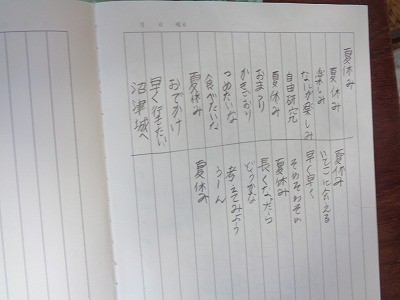 月 日 曜日
夏休み
夏休み
楽しみ
なにが楽しみ
自由研究
夏休み
おまつり
かきごおり
つめたいな
食べたいな
夏休み
おでかけ
早く行きたい
沼津城へ
夏休み
いとこに会える
早く早く
そわそわそわ
夏休み
長くなったら
どうかな
考えてみよう
うーん
夏休み